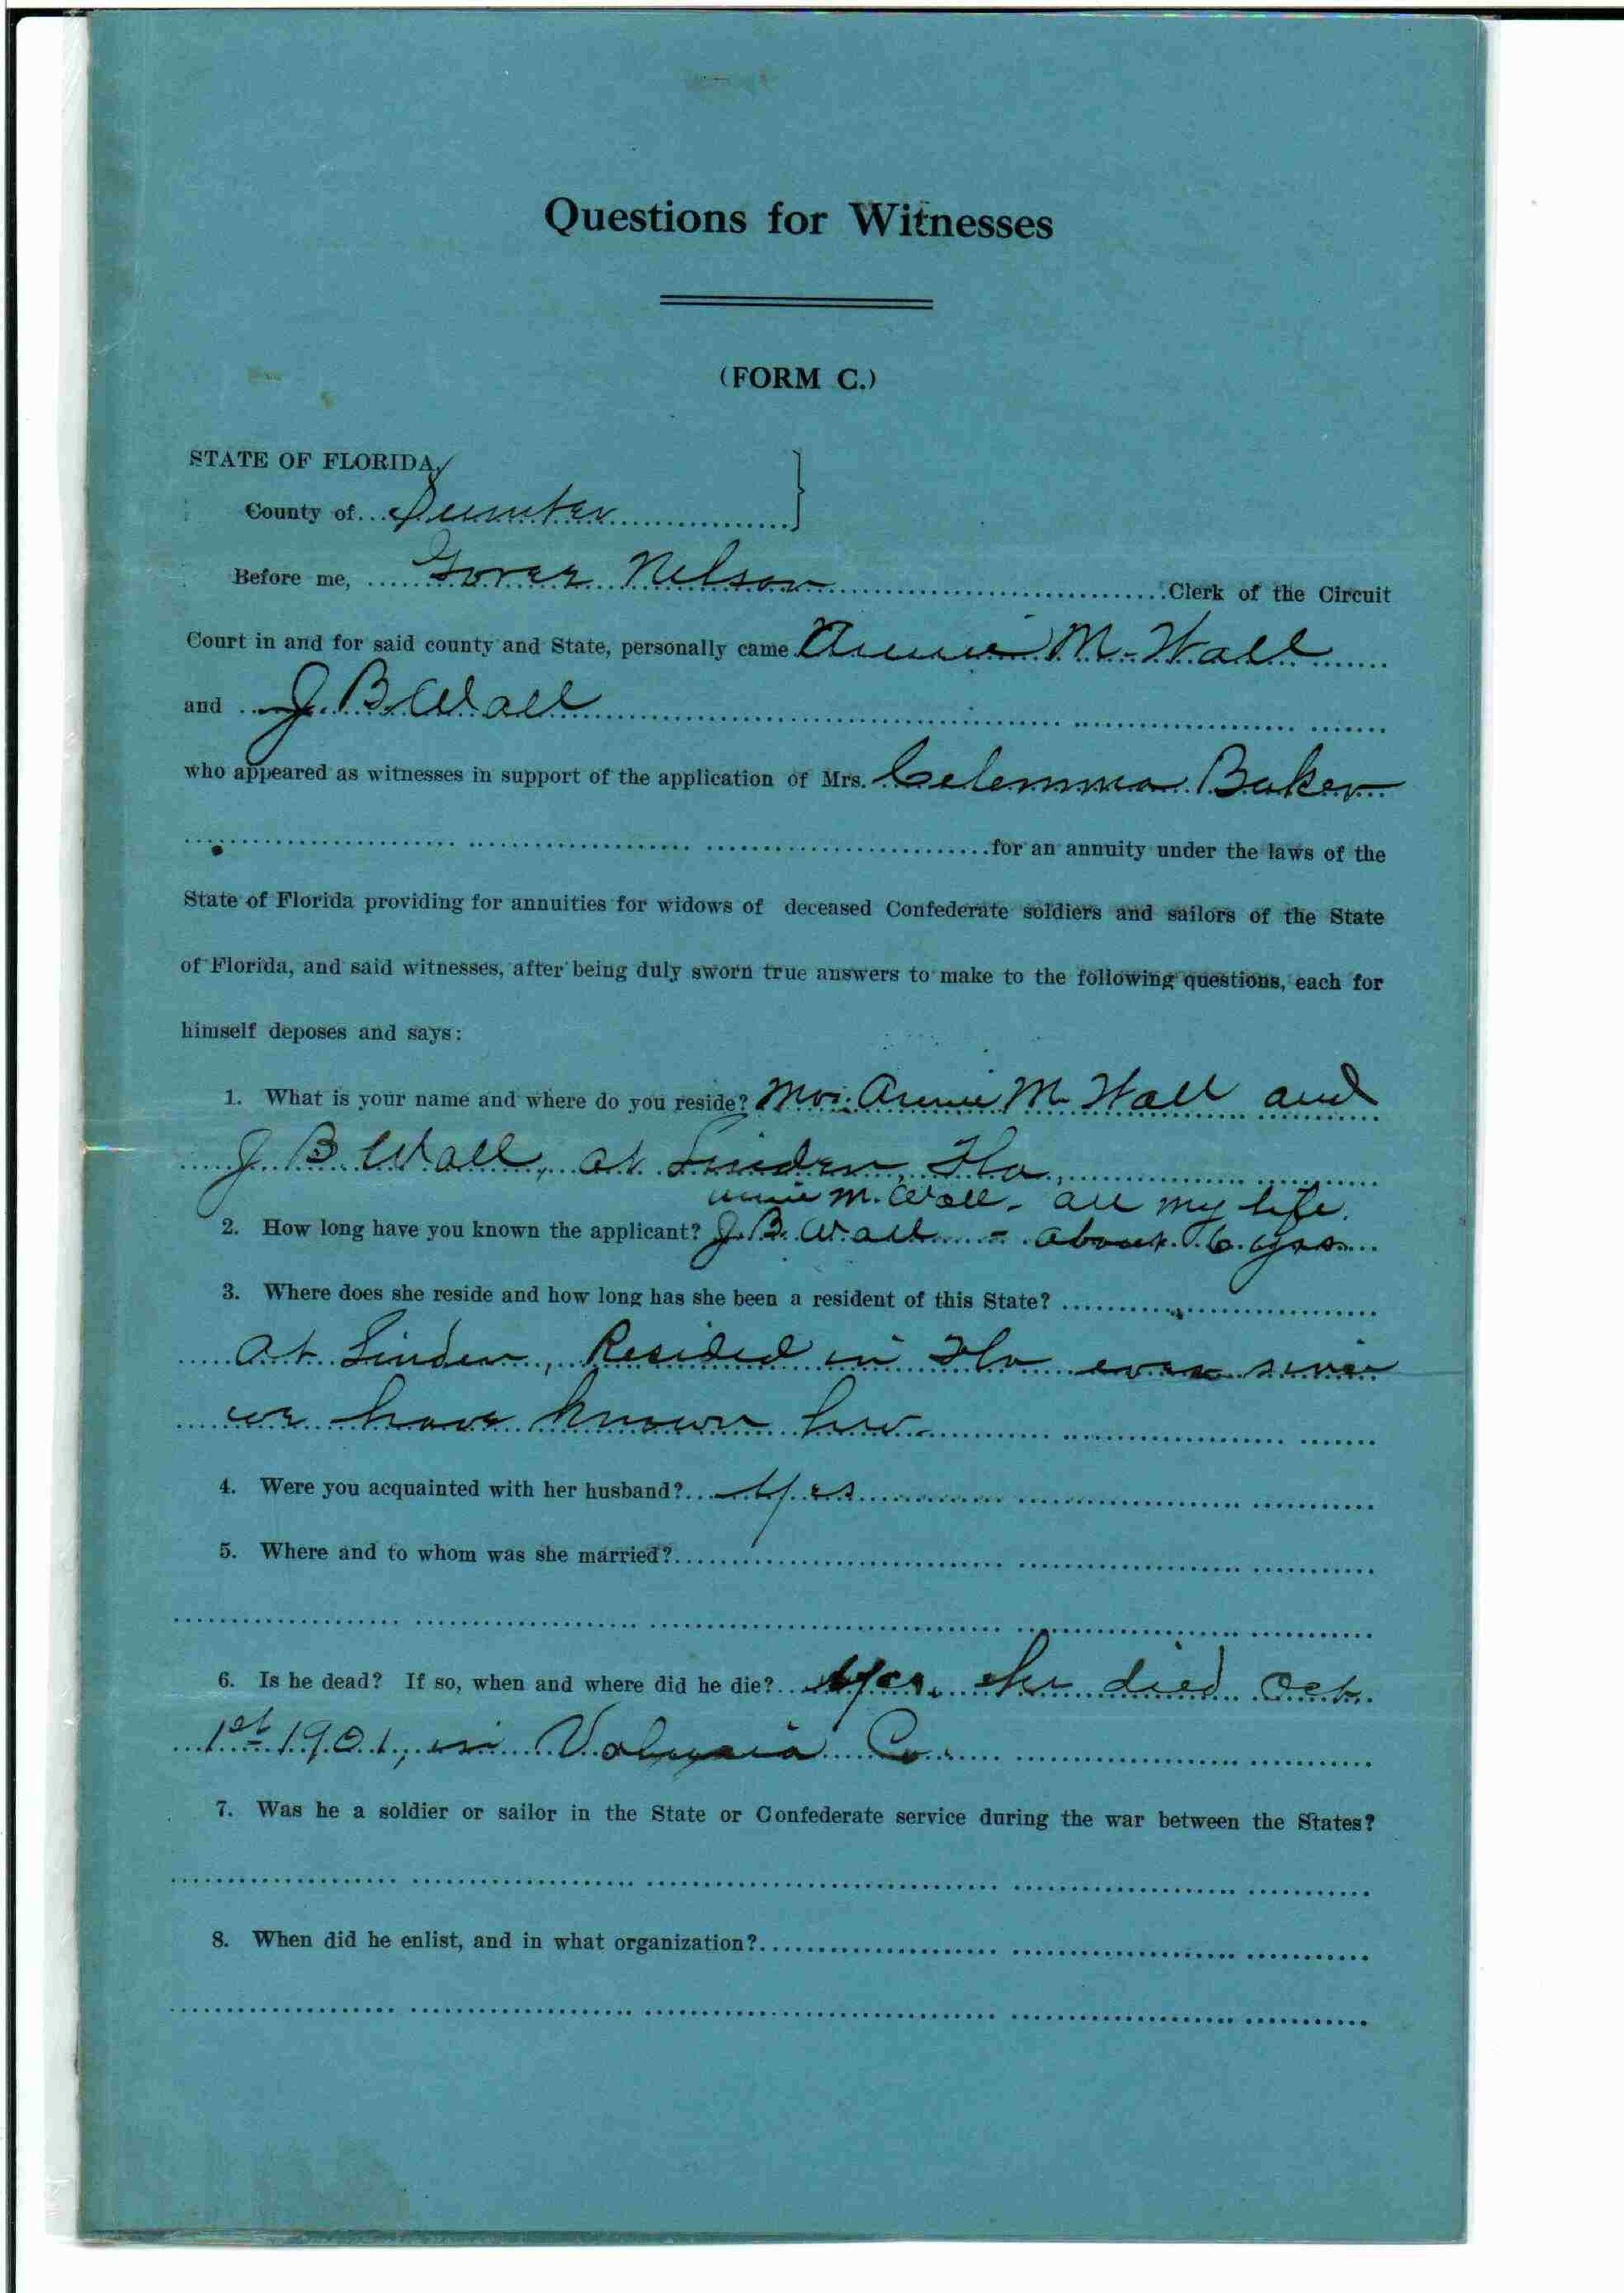 Questions for Witnesses
(FORM C.)
STATE OF FLORIDA,
County of Sumter }
Before me, Nelson Clerk of the Circuit
Court in and for said county and State, personally came Annie M. Wall
and J. B. Wall
who appeared as witnesses in support of the application of Mrs. Celemma Baker
for an annuity under the laws of the
State of Florida providing for annuities for widows of deceased Confederate soldiers and sailors of the State
of Florida, and said witnesses, after being duly sworn true answers to make to the following questions, each for
himself deposes and says:
1. What is your name and where do you reside? Mrs. Annie M. Wall and
J B Wall, at Linden, Fla,
Annie M. Wall - all my life.
2. How long have you known the applicant? J. B. Wall - about 6 yrs
3. Where does she reside and how long has she been a resident of this State?
At Linden, Resided in Fla ever since
we have known her
4. Were you acquainted with her husband? Yes
5. Where and to whom was she married?
6. Is he dead? If so, when and where did he die? Yes. He died Oct.
1st 1901, in Volusia Co.
7. Was he a soldier or sailor in the State or Confederate service during the war between the States?
8. When did he enlist, and in what organization?